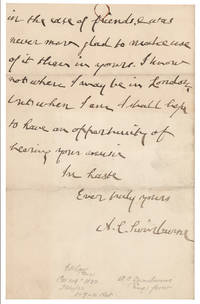 in the case of friends, & was
never more glad to make use
of it than in yours. I know
not where I may be in London,
but when I am I shall hope
to have an opportunity of
hearing your music
In haste
Ever truly yours
A. C. Swinburne